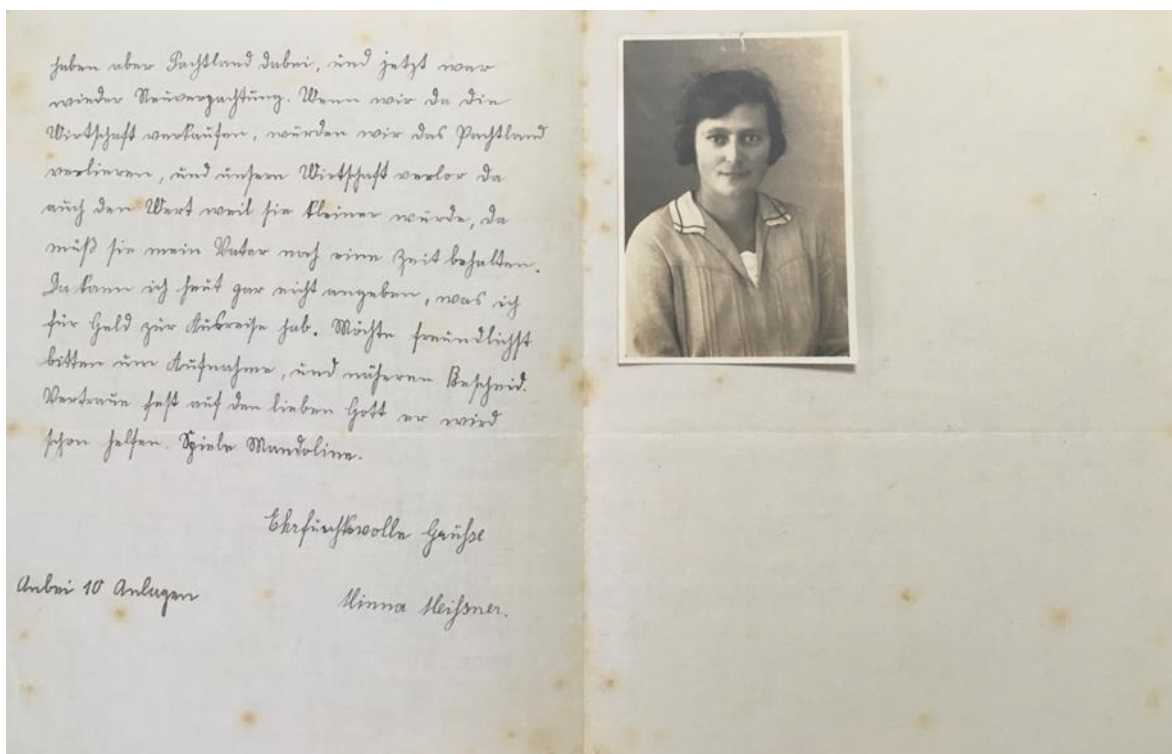 haben aber Pachtland dabei, und jetzt war
wieder Neuverpachtung. Wenn wir da die
Wirtschaft verkaufen, würden wir das Pachtland
verlieren, und unsern Wirtschaft verlor da
auch den Wert weil sie kleiner würde, da
muß sie mein Vater noch eine Zeit behalten.
Da kann ich heut gar nicht angeben, was ich
für Geld zur Ausreise hab. Möchte freundlichst
bitten um Aufnahme, und näheren Bescheid.
Vertraue fest auf den lieben Gott er wird
schon helfen. Spiele Mandoline.
Ehrfurchtsvolle Grüße
Anbei 10 Anlagen
Minna Meißner.